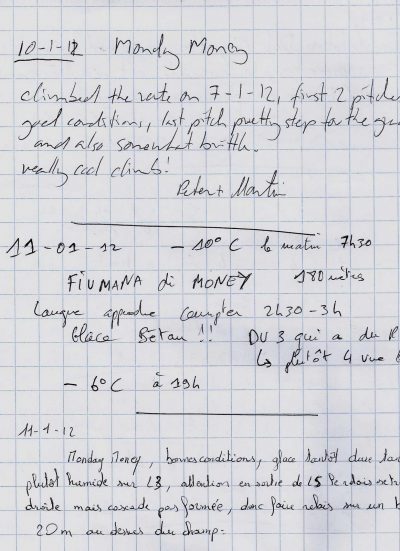 10-1-12 Monday Money
climbed the rate on 7-1-12, first 2 pitche
good conditions, last pitch pretty step for the
and also somewhat brittle.
really cool climb!
Peter + Martin
11-01-12 -10°C le matin 7h30
FIUMANA di MONEY 180 mètres
Longue approche compter 2h30-3h
Glace Béton !! DU 3 qui a du
↳ plutôt 4 vue
-6°C à 19h
11-1-12
Monday Money, bonnes conditions, glace tantôt dure
plutôt humide sur L3, attention en sortie de L5 le relais
droite mais cascade pas formée, donc faire relais sur un
20m au dessus du champ